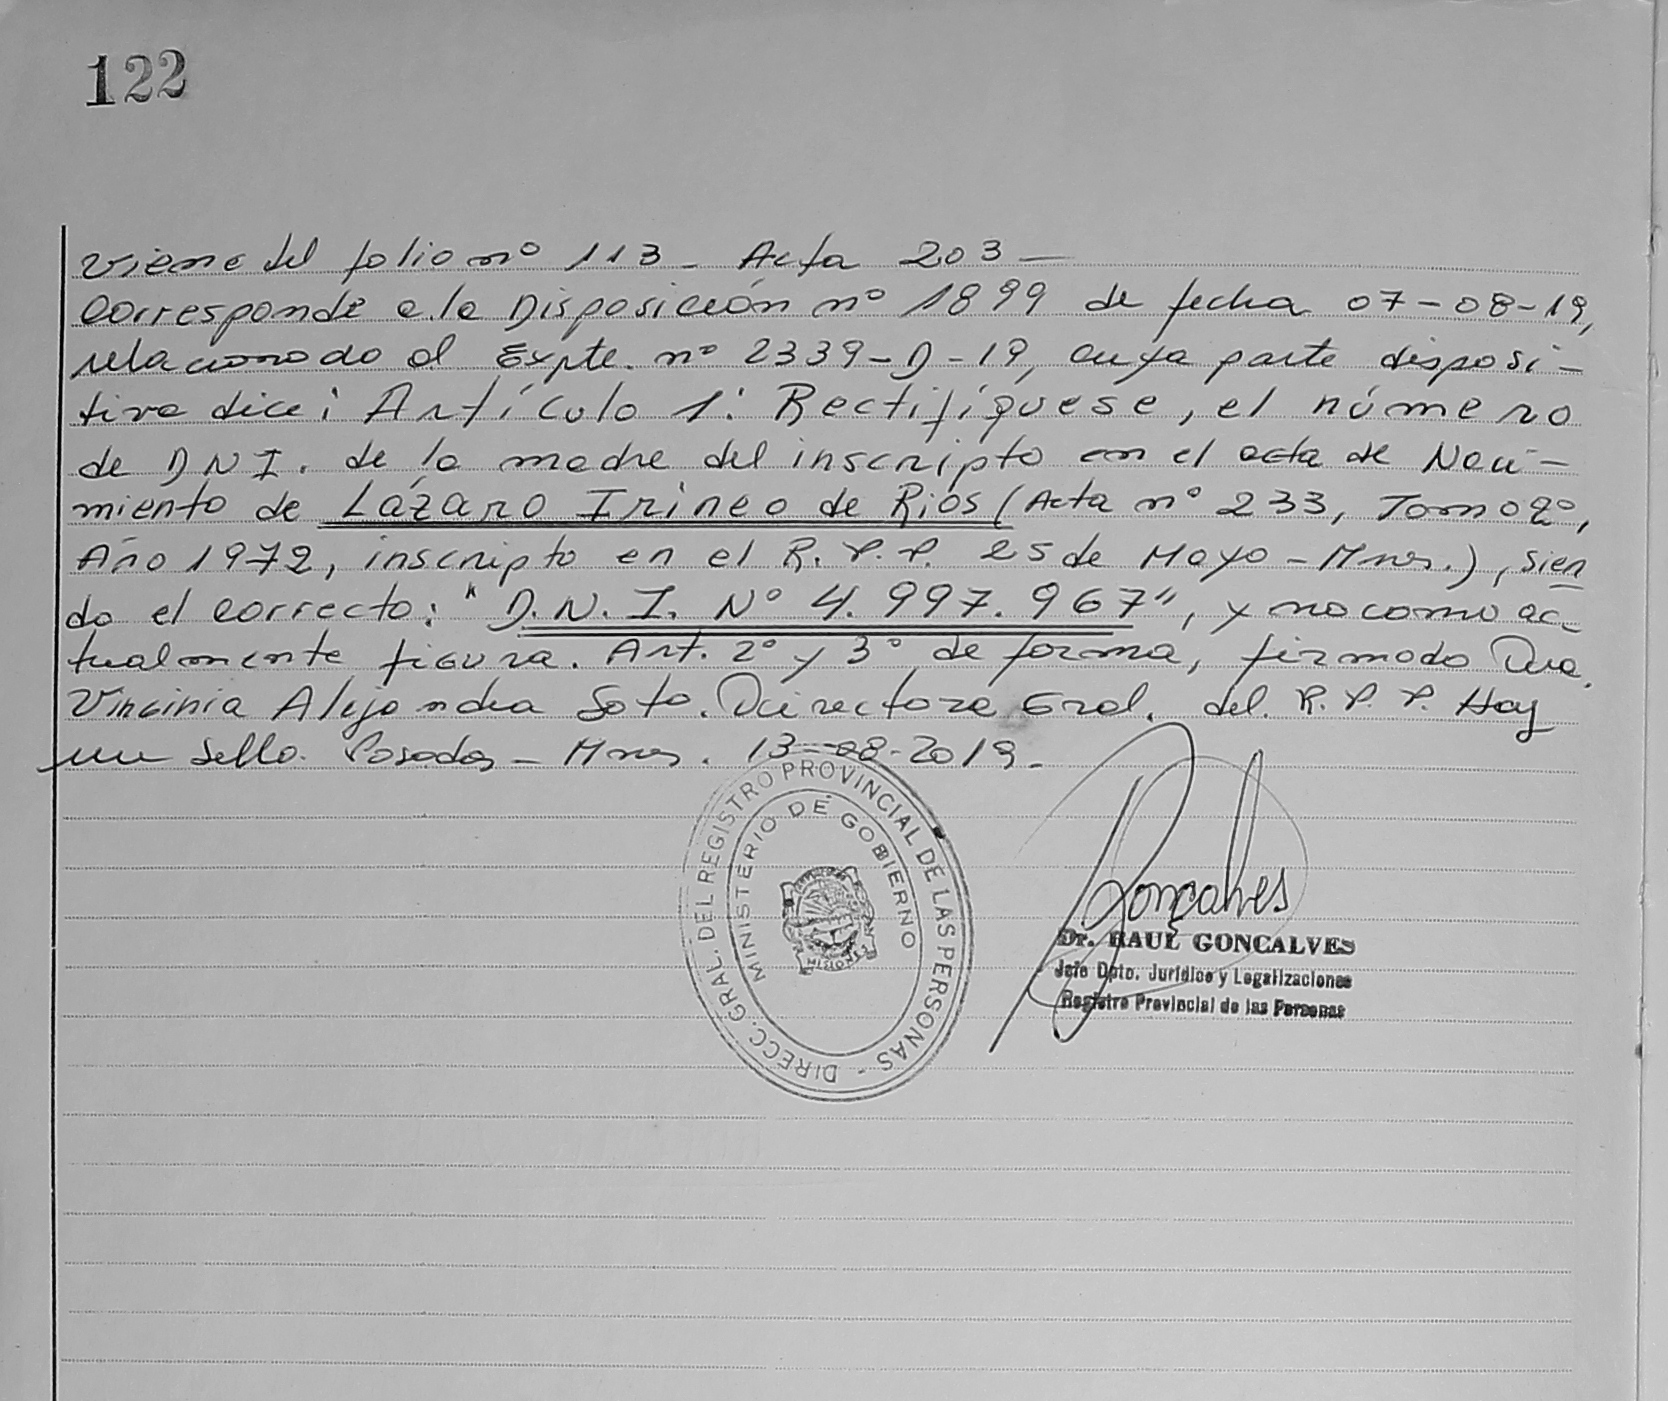 122
Viene del folio nº 113 - Acta 203 -
Corresponde a la Disposición nº 1899 de fecha 07-08-19,
relacionado al Expte. nº 2339-D-19, cuya parte disposi-
tiva dice: Artículo 1: Rectifíquese, el número
de DNI. de la madre del inscripto en el acta de Naci-
miento de Lázaro Irineo de Rios (Acta nº 233, Tomo 2º,
Año 1972, inscripto en el R.P.P. 25 de Mayo - Mnes.), sien
do el correcto: "D.N.I. Nº 4.997.967", y no como ac-
tualmente figura. Art. 2º y 3º de forma, firmado Dra.
Virginia Alejandra Soto. Directora Gral. del R.P.P. Hay
un sello. Posadas - Mnes. 13-08-2019.
DIRECC. GRAL. DEL REGISTRO PROVINCIAL DE LAS PERSONAS -
MINISTERIO DE GOBIERNO
MISIONES
Gonçalves
Dr. RAUL GONCALVES
Jefe Dpto. Jurídico y Legalizaciones
Registro Provincial de las Personas